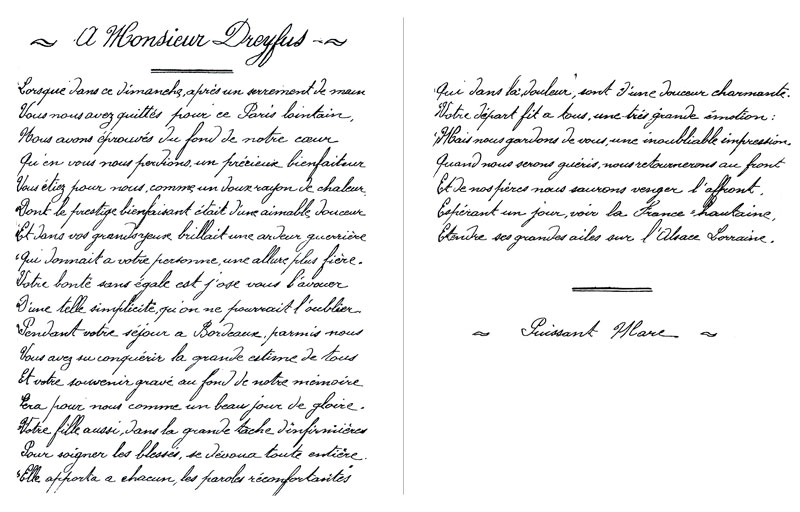 ~ A Monsieur Dreyfus ~
Lorsque dans ce dimanche, après un serrement de main
Vous nous avez quittés pour ce Paris lointain,
Nous avons éprouvés du fond de notre cœur
Qu'en vous nous perdions, un précieux bienfaiteur
Vous étiez pour nous, comme un doux rayon de chaleur,
Dont le prestige bienfaisant était d'une aimable douceur
Et dans vos grands yeux brillait une ardeur guerrière
Qui donnait a votre personne, une allure plus fière.
Votre bonté sans égale est j'ose vous l'avouer
D'une telle simplicité, qu'on ne pourrait l'oublier.
Pendant votre séjour a Bordeaux, parmis nous
Vous avez su conquérir la grande estime de tous
Et votre souvenir gravé au fond de notre mémoire
Sera pour nous comme un beau jour de gloire.
Votre fille aussi, dans la grande tache d'infirmières
Pour soigner les blessés, se dévoua toute entière.
Elle apporta a chacun, les paroles réconfortantes
Qui dans la douleur, sont d'une douceur charmante.
Votre départ fit a tous, une très grande émotion :
Mais nous gardons de vous, une inoubliable impression.
Quand nous serons guéris, nous retournerons au front
Et de nos pères nous saurons venger l'affront.
Espérant un jour, voir la France hautaine,
Etendre ses grandes ailes sur l'Alsace Lorraine.
~ Puissant Marc ~